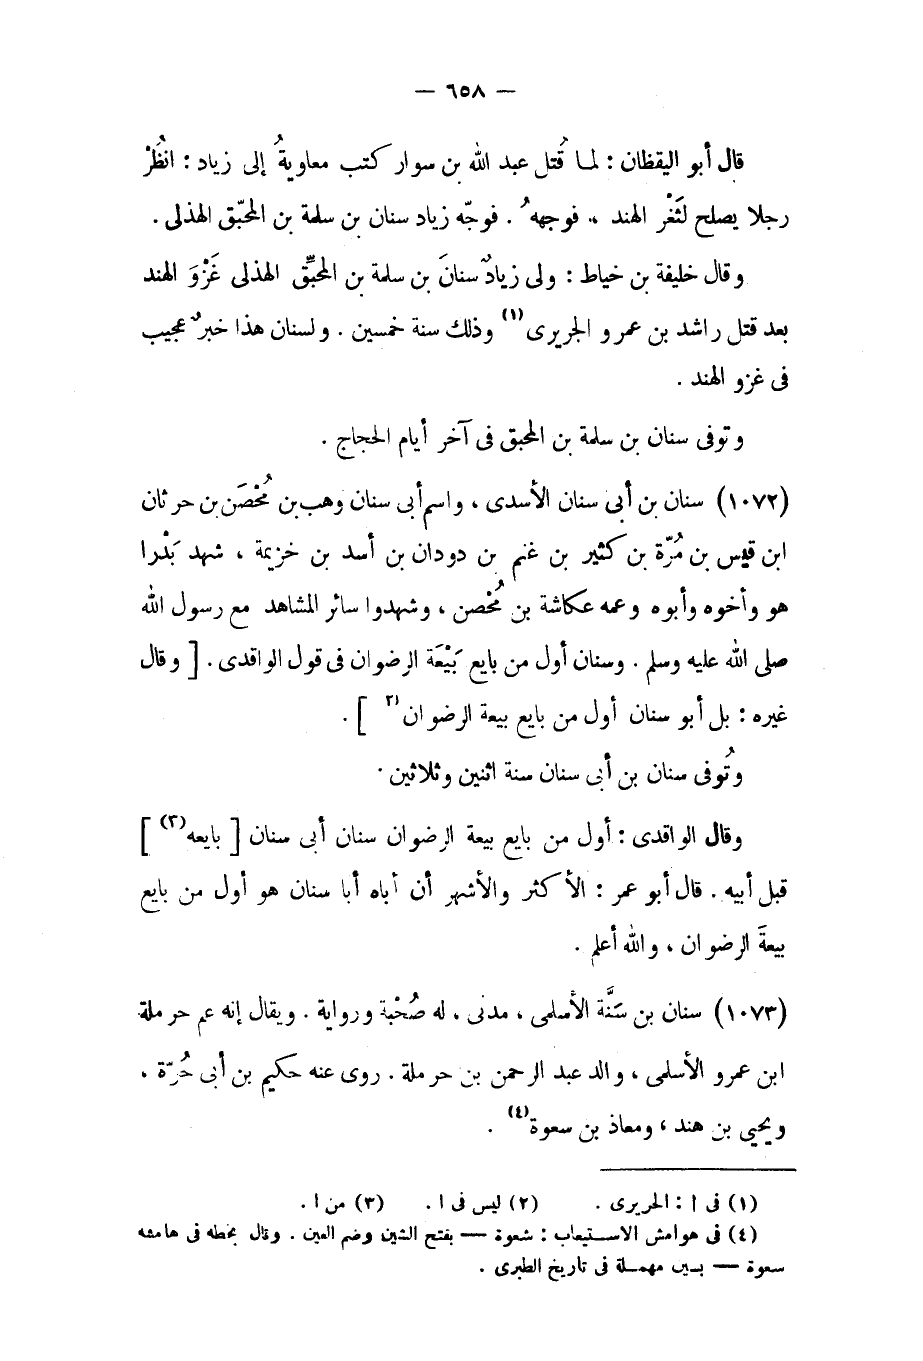 — ٦٥٨ —
قال أبو اليقظان : لما قُتل عبد الله بن سوار كتب معاويةُ إلى زياد : انظُرْ
رجلا يصلح لثَغْر الهند ، فوجههُ . فوجّه زياد سنان بن سلمة بن المحبّق الهذلى .
وقال خليفة بن خياط : ولى زيادٌ سنانَ بن سلمة بن المحبِّق الهذلى غَزْوَ الهند
بعد قتل راشد بن عمرو الجريرى (١) وذلك سنة خمسين . ولسنان هذا خبرٌ عجيب
فى غزو الهند .
وتوفى سنان بن سلمة بن المحبق فى آخر أيام الحجاج .
(١٠٧٢) سنان بن أبى سنان الأسدى ، واسم أبى سنان وهب بن مُحْصَن بن حرثان
ابن قيس بن مُرّة بن كثير بن غنم بن دودان بن أسد بن خزيمة ، شهد بَدْرا
هو وأخوه وأبوه وعمه عكاشة بن مُحْصن ، وشهدوا سائر المشاهد مع رسول الله
صلى الله عليه وسلم . وسنان أول من بايع بَيْعَة الرضوان فى قول الواقدى . [ وقال
غيره : بل أبو سنان أول من بايع بيعة الرضوان (٢ ] .
وتُوفى سنان بن أبى سنان سنة اثنين وثلاثين .
وقال الواقدى : أول من بايع بيعة الرضوان سنان أبى سنان [ بايعه (٣) ]
قبل أبيه . قال أبو عمر : الأكثر والأشهر أن أباه أبا سنان هو أول من بايع
بيعةَ الرضوان ، والله أعلم .
(١٠٧٣) سنان بن سَنَّة الأسلمى ، مدنى ، له صُحْبة ورواية . ويقال إنه عم حرملة
ابن عمرو الأسلمى ، والد عبد الرحمن بن حرملة . روى عنه حكيم بن أبى حُرّة ،
ويحيى بن هند ، ومعاذ بن سعوة (٤) .
(١) فى ا : الحريرى . (٢) ليس فى ا . (٣) من ا .
(٤) فى هوامش الاستيعاب : شعوة — بفتح الشين وضم العين . وقال بخطه فى هامشه
سعوة — بسين مهملة فى تاريخ الطبرى .